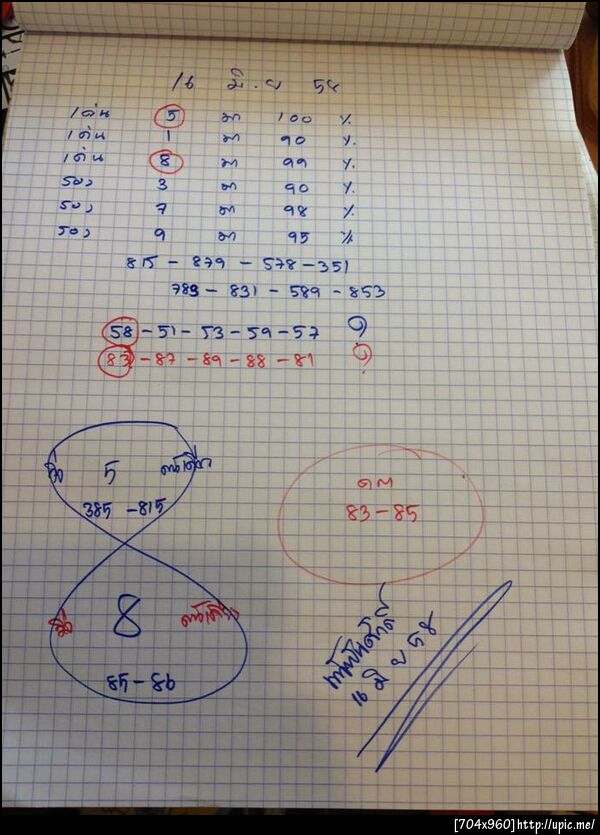 16 มิ.ย 58
เด่น 5 มา 100 %
เด่น 1 มา 90 %
เด่น 8 มา 99 %
รอง 3 มา 90 %
รอง 7 มา 98 %
รอง 9 มา 95 %
815 - 879 - 578 - 351
789 - 831 - 589 - 853
58 - 51 - 53 - 59 - 57
83 - 87 - 89 - 88 - 81
5
385 - 815
83 - 85
8
85 - 86
16 มิ ย 58
[704x960]http://upic.me/